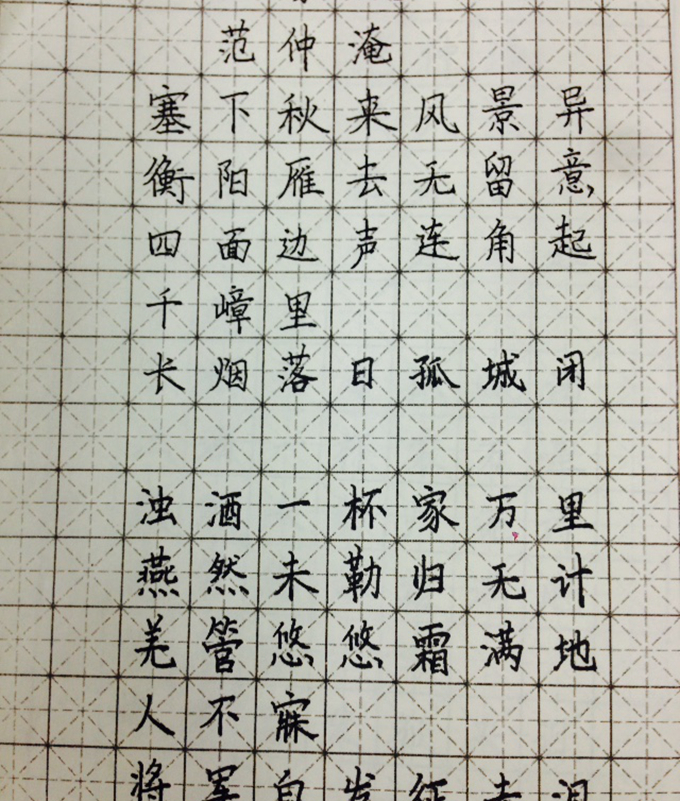 范仲淹
塞下秋来风景异
衡阳雁去无留意
四面边声连角起
千嶂里
长烟落日孤城闭
浊酒一杯家万里
燕然未勒归无计
羌管悠悠霜满地
人不寐
将军白发征夫泪